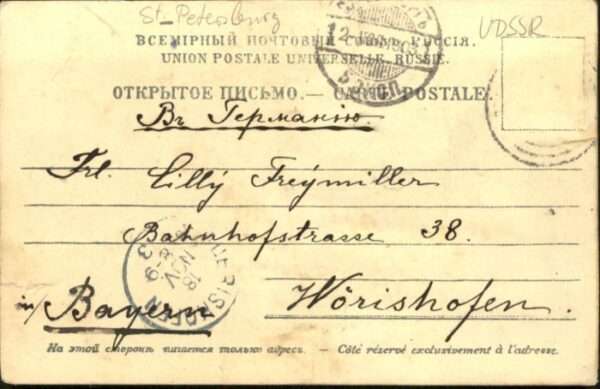 St-Petersburg
UDSSR
ВСЕМІРНЫЙ ПОЧТОВЫЙ СОЮЗЪ. РОССІЯ.
UNION POSTALE UNIVERSELLE. RUSSIE.
ОТКРЫТОЕ ПИСЬМО. — CARTE POSTALE.
Въ Германію.
Frl. Lilly Freymiller
Bahnhofstrasse 38.
WOERISHOFEN
18
NOV
in/ Bayern Wörishofen.
На этой сторонѣ пишется только адресъ. — Côté réservé exclusivement à l'adresse.